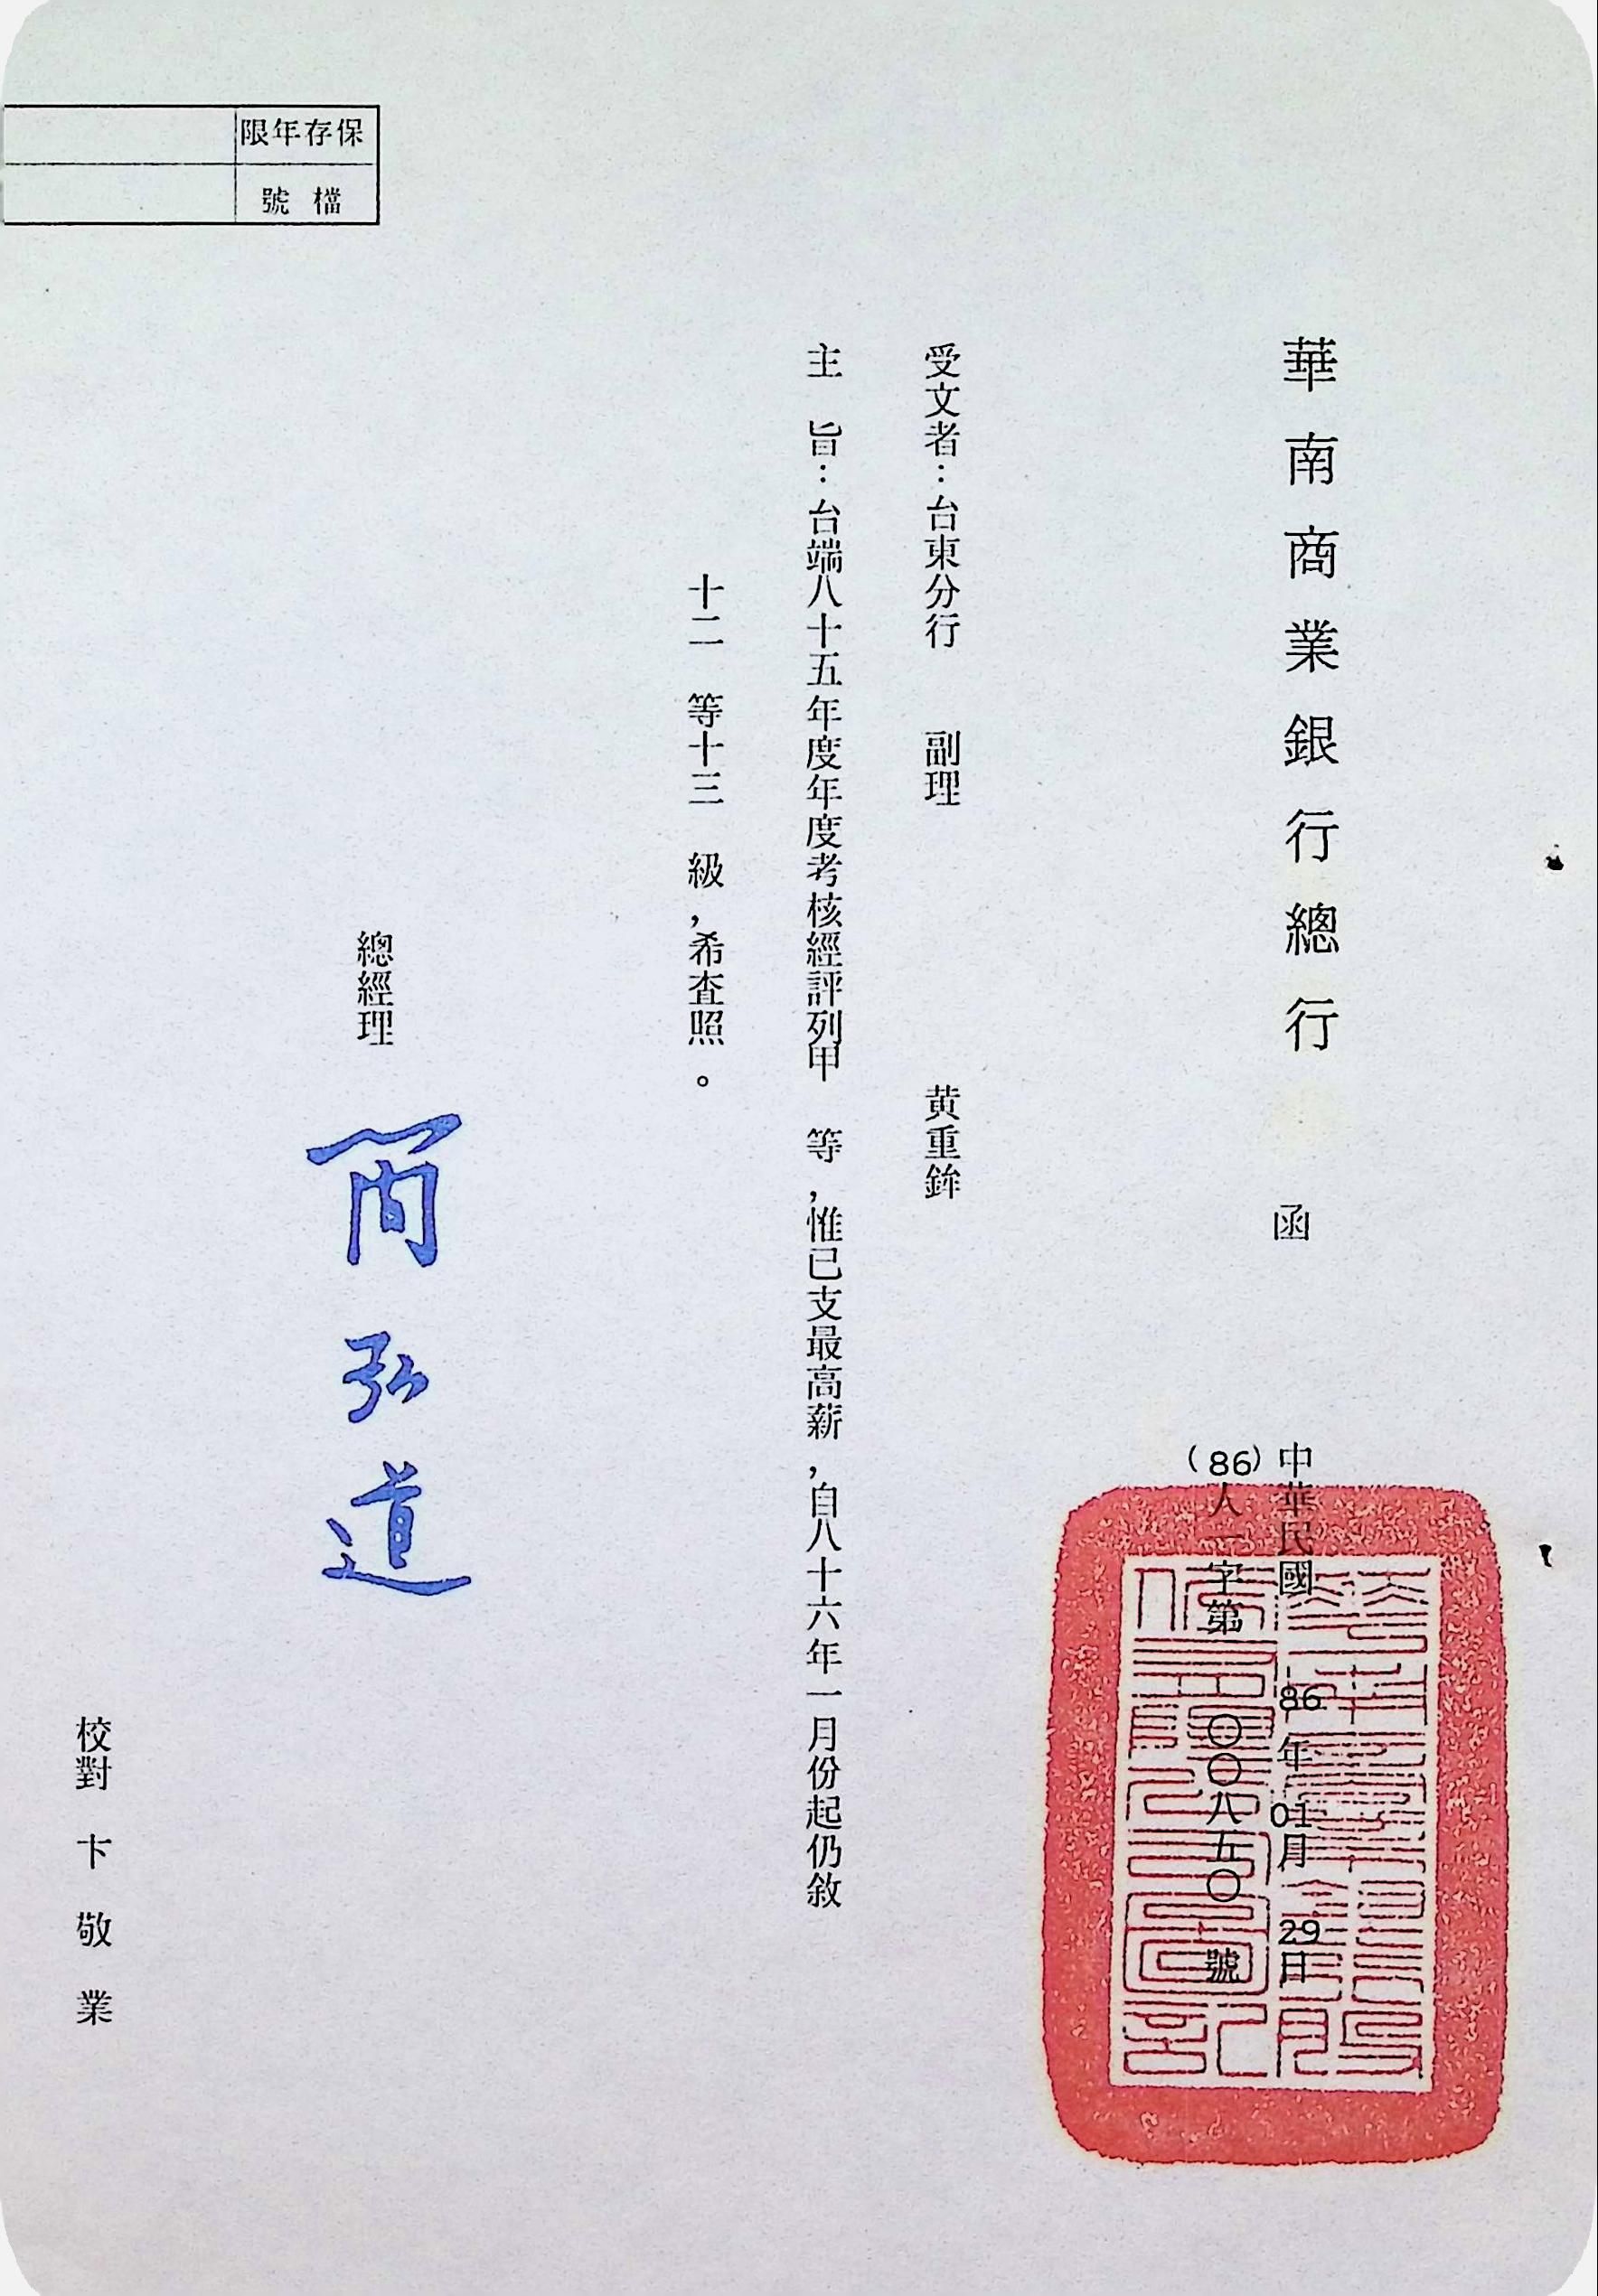 華南商業銀行總行 函
中華民國 86年 01月 29日
（86）人一字第 〇〇八五〇 號
受文者：台東分行 副理 黄重鉾
主 旨：台端八十五年度年度考核經評列甲 等，惟已支最高薪，自八十六年一月份起仍敘
十二 等十三 級，希查照。
總經理 簡弘道
校對 卞敬業
保存年限
檔號